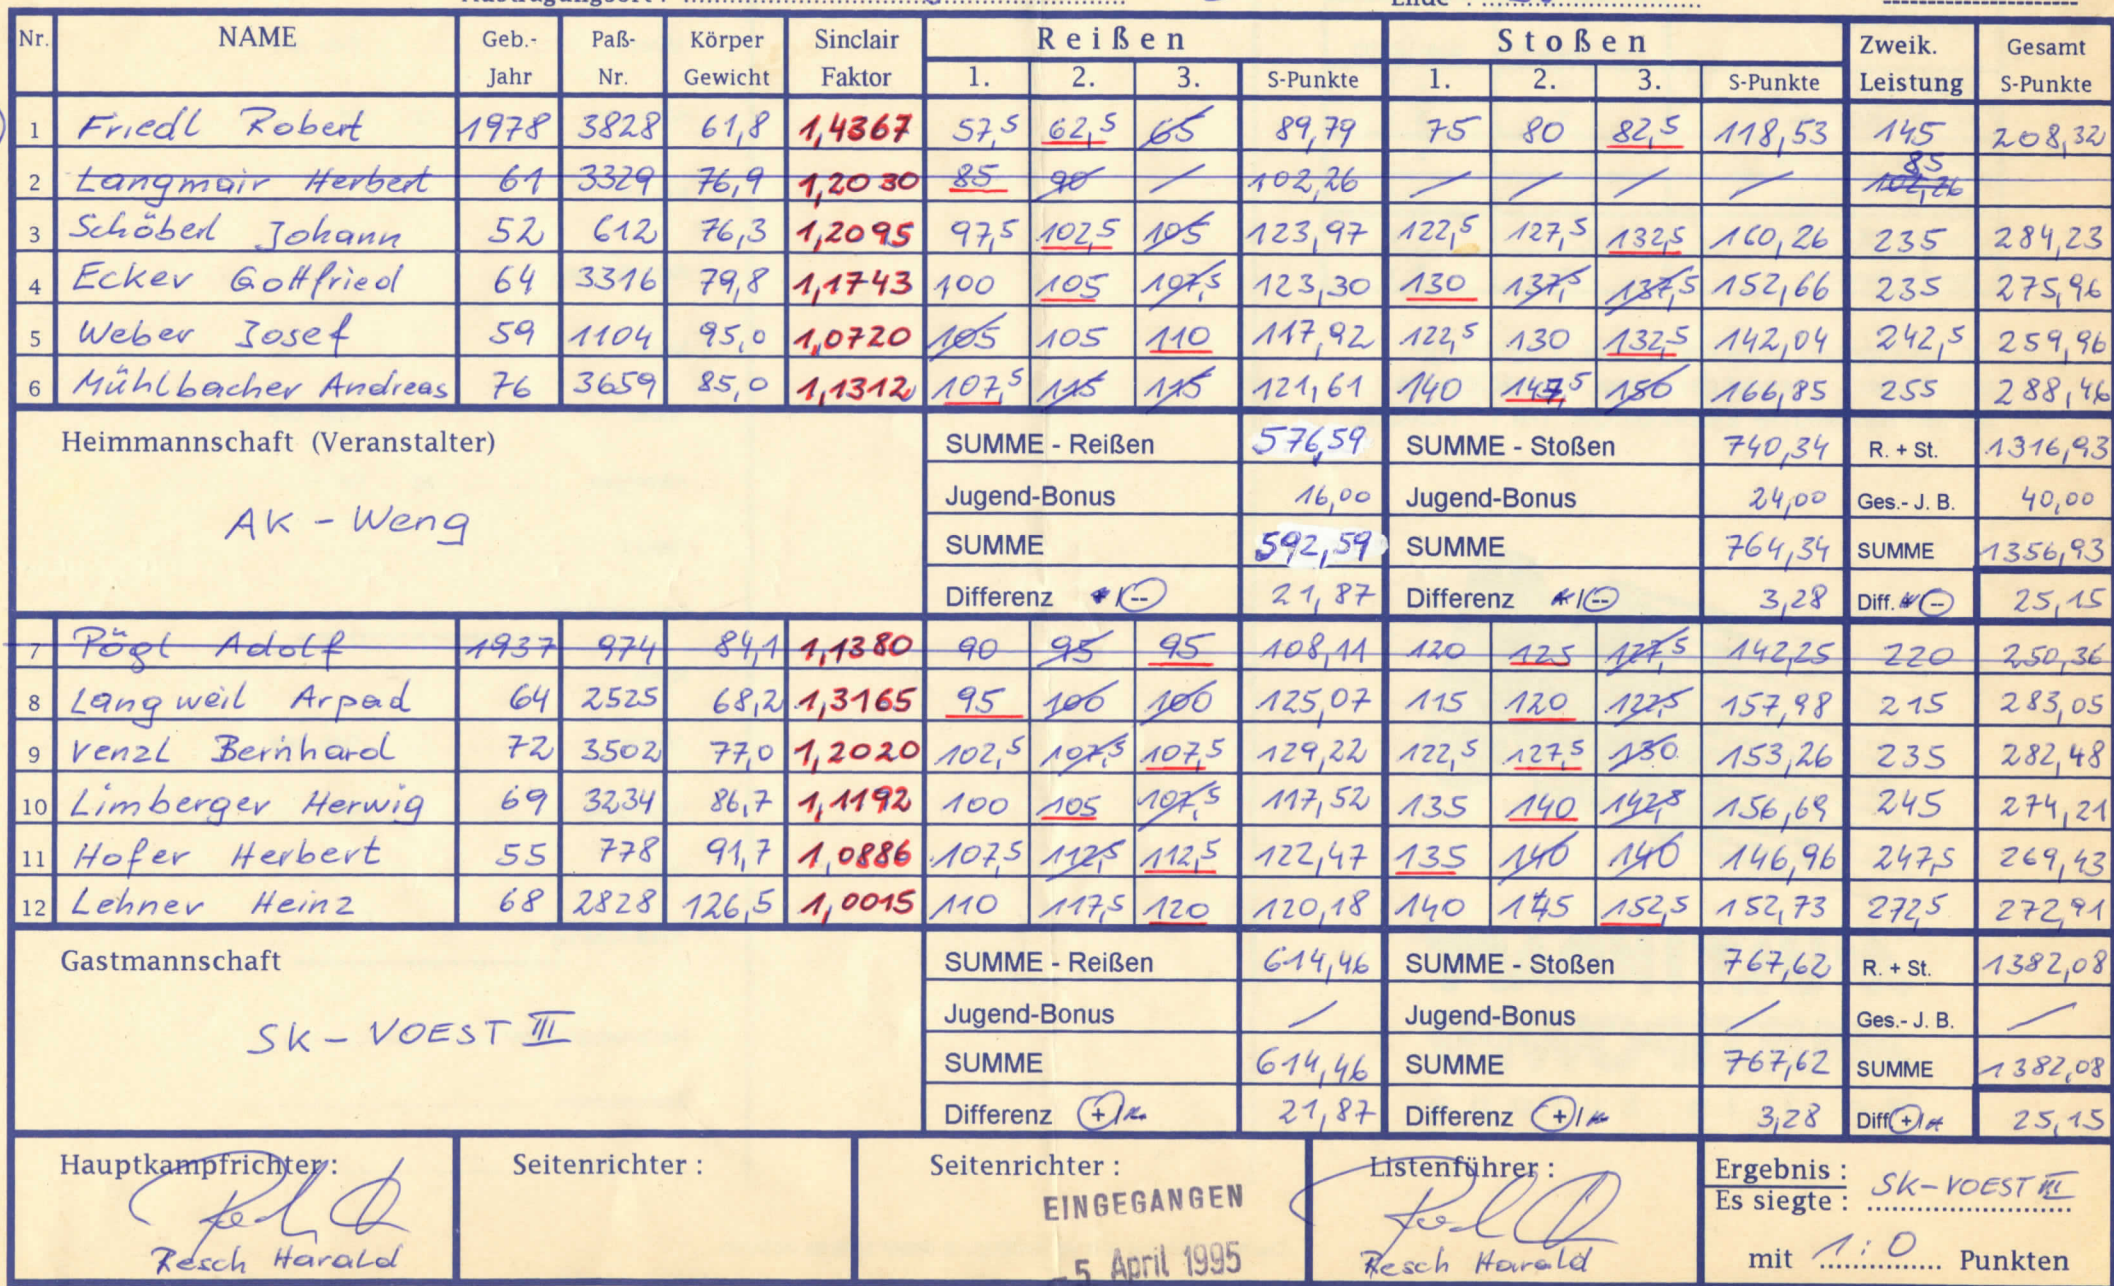 Austragungsort : Ende :
Nr. NAME Geb.- Jahr Paß- Nr. Körper Gewicht Sinclair Faktor Reißen 1. 2. 3. S-Punkte Stoßen 1. 2. 3. S-Punkte Zweik. Leistung Gesamt S-Punkte
1 Friedl Robert 1978 3828 61,8 1,4367 57,5 62,5 65 89,79 75 80 82,5 118,53 145 208,32
2 Langmair Herbert 61 3329 76,9 1,2030 85 90 / 102,26 / / / / 85 102,26
3 Schöberl Johann 52 612 76,3 1,2095 97,5 102,5 105 123,97 122,5 127,5 132,5 160,26 235 284,23
4 Ecker Gottfried 64 3316 79,8 1,1743 100 105 107,5 123,30 130 137,5 137,5 152,66 235 275,96
5 Weber Josef 59 1104 95,0 1,0720 105 105 110 117,92 122,5 130 132,5 142,04 242,5 259,96
6 Mühlbacher Andreas 76 3659 85,0 1,1312 107,5 115 115 121,61 140 147,5 150 166,85 255 288,46
Heimmannschaft (Veranstalter) SUMME - Reißen 576,59 SUMME - Stoßen 740,34 R. + St. 1316,93
Jugend-Bonus 16,00 Jugend-Bonus 24,00 Ges.- J. B. 40,00
AK - Weng
SUMME 592,59 SUMME 764,34 SUMME 1356,93
Differenz +/-- 21,87 Differenz +/-- 3,28 Diff. +/-- 25,15
7 Pögl Adolf 1937 974 84,1 1,1380 90 95 95 108,11 120 125 127,5 142,25 220 250,36
8 Langweil Arpad 64 2525 68,2 1,3165 95 100 100 125,07 115 120 122,5 157,98 215 283,05
9 Venzl Bernhard 72 3502 77,0 1,2020 102,5 107,5 107,5 129,22 122,5 127,5 130 153,26 235 282,48
10 Limberger Herwig 69 3234 86,7 1,1192 100 105 107,5 117,52 135 140 142,5 156,69 245 274,21
11 Hofer Herbert 55 778 91,7 1,0886 107,5 112,5 112,5 122,47 135 140 140 146,96 247,5 269,43
12 Lehner Heinz 68 2828 126,5 1,0015 110 117,5 120 120,18 140 145 152,5 152,73 272,5 272,91
Gastmannschaft SUMME - Reißen 614,46 SUMME - Stoßen 767,62 R. + St. 1382,08
Jugend-Bonus / Jugend-Bonus / Ges.- J. B. /
SK - VOEST III
SUMME 614,46 SUMME 767,62 SUMME 1382,08
Differenz +/-- 21,87 Differenz +/-- 3,28 Diff +/-- 25,15
Hauptkampfrichter : Seitenrichter : Seitenrichter : Listenführer : Ergebnis :
Es siegte : SK-VOEST III
EINGEGANGEN
Resch Harald - 5. April 1995 Resch Harald mit 1:0 Punkten